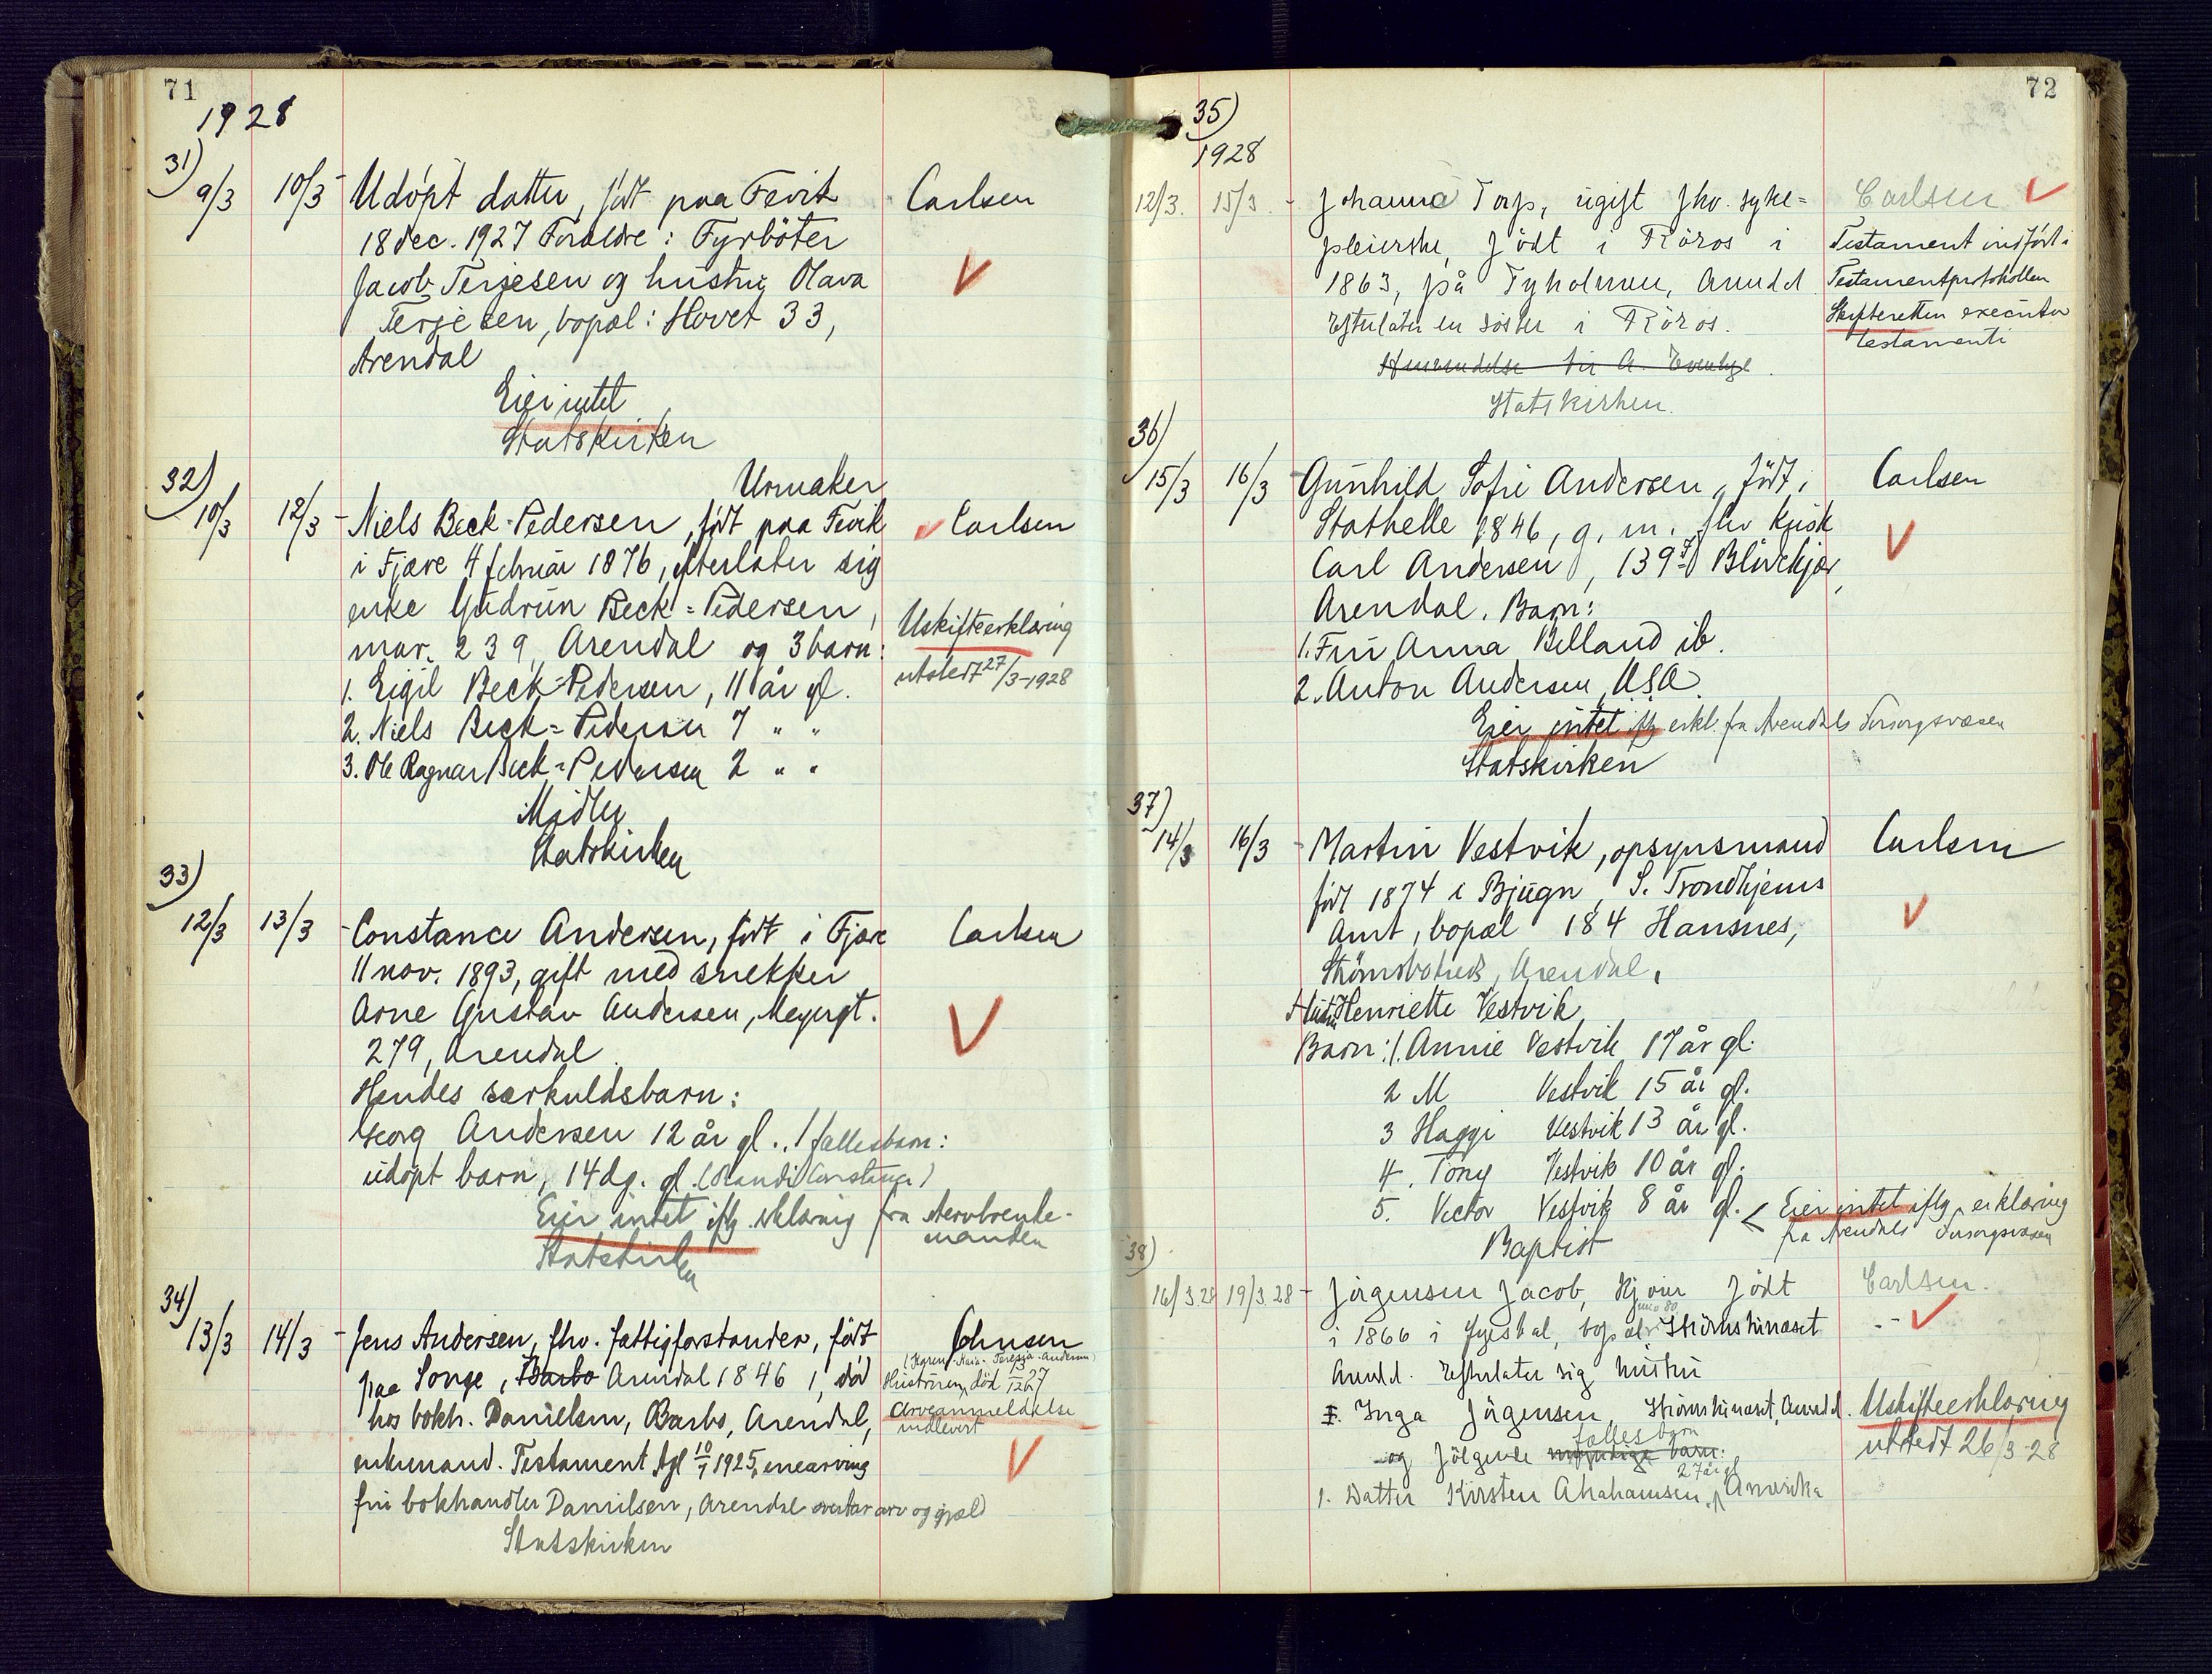 71
1928
31)
9/3 10/3 - Udöpt datter, født paa Fevik Carlsen
18 dec. 1927 Foraldre: Fyrböter
Jacob Terjesen og hustru Olava
Terjesen, bopæl: Hovet 33,
Arendal
Eier intet
Statskirken
32)
Urmaker
10/3 12/3 - Niels Beck-Pedersen, født paa Fevik Carlsen
i Fjære 4 februar 1876, efterlater sig
enke Gudrun Beck-Pedersen,
mar. 239, Arendal og 3 barn:
Uskifteerklæring
utstedt 27/3-1928
1. Eigil Beck-Pedersen, 11 år gl.
2. Niels Beck-Pedersen 7 " "
3. Ole Ragnar Beck-Pedersen 2 " "
Midler
Statskirken
33)
12/3 13/3 - Constance Andersen, født i Fjære Carlsen
11 nov. 1893, gift med snekker
Arne Gustav Andersen, Meyergt.
279, Arendal.
Hendes særkuldsbarn:
Georg Andersen 12 år gl., 1 fællesbarn:
udöpt barn, 14 dg. gl. (Randi Constance)
Eier intet iflg. erklæring fra
Statskirken
34)
13/3 14/3 - Jens Andersen, fhv. fattigforstander, født Johnsen
paa Songe, Barbo Arendal 1846, död
hos bokh. Danielsen, Barbo, Arendal,
enkemand. Testament dgl 10/7 1925, enearving
fru bokhandler Danielsen, Arendal overtar arv og gjæld
Statskirken
Hustruen, död
Arveanmeldelse
indlevert
72
35)
1928
12/3. 15/3. - Johanne Torp, ugift fhv. syke- Carlsen
pleierske, födt i Röros i
1863, på Tyholmen, Arendal
Efterlater en söster i Röros.
Statskirken.
Testament indført i
Testamentprotokollen
Skifteretten executor
testamenti
36)
15/3 16/3 - Gunhild Sofie Andersen, född i Carlsen
Stathelle 1846, g. m. fhv kusk
Carl Andersen, 139 Blödekjær,
Arendal. Barn:
1. Fru Anna Belland ib.
2. Anton Andersen, USA.
Eier intet iflg erkl. fra Arendals Forsorgsvæsen
Statskirken
37)
14/3 16/3 - Martin Vestvik, opsynsmand Carlsen
født 1874 i Bjugn, S. Trondhjems
Amt, bopæl 184 Hansnes,
Strömsbotred, Arendal.
Hustru Henriette Vestvik
Barn: 1. Annie Vestvik 17 år gl.
2 M Vestvik 15 år gl.
3 Haggi Vestvik 13 år gl.
4. Tony Vestvik 10 år gl.
5. Vector Vestvik 8 år gl. < Eier intet iflg. erklæring
fra Arendals Forsorgsvæsen
Baptist
38)
16/3.28 19/3.28 - Jörgensen Jacob, födt Carlsen.
i 1866 i Gjestal, bopæl: Strömshimaset
Arendal. Efterlater sig hustru
I. Inga Jörgensen, Strömshimaset, Arendal.
fælles barn
og fölgende myndige barn:
27 år gl
1. Datter Kirsten Abrahamsen, Amerika
Uskifteerklæring
utstedt 26/3-28